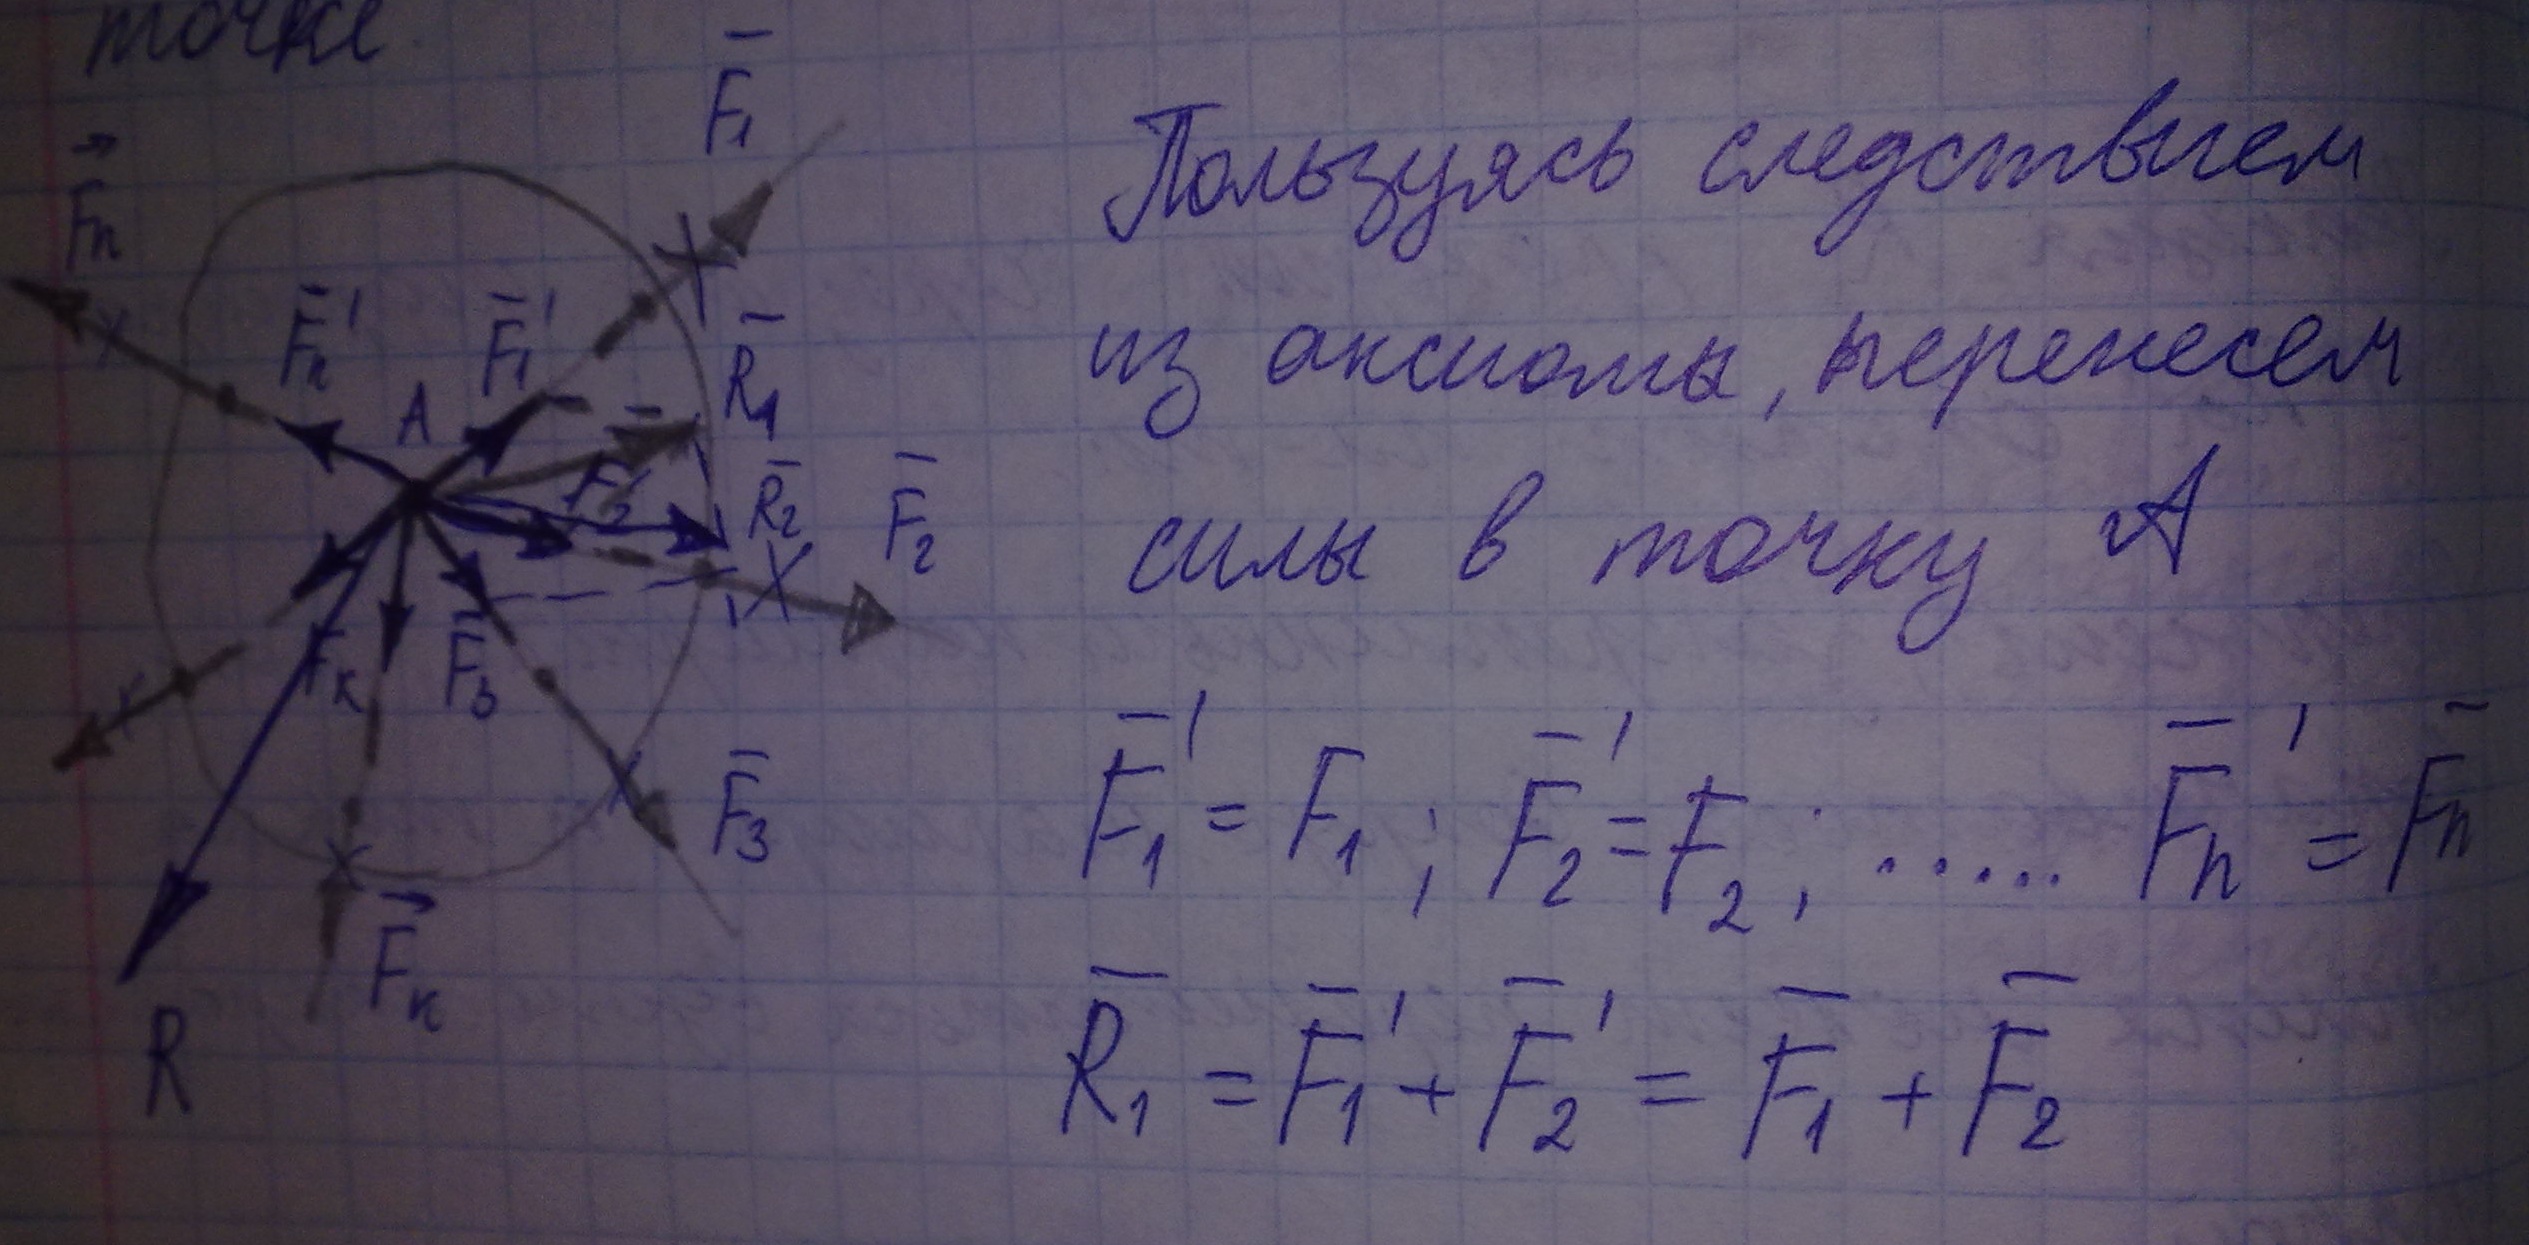 точке
F̄₁
F⃗n
F̄n' F̄₁'
R̄₁
A
F₂' R̄₂ F̄₂
Fк F̄₃
F̄₃
F⃗к
R
Пользуясь следствием
из аксиомы, перенесем
силы в точку А
F̄₁' = F₁; F̄₂' = F₂; ..... F̄n' = F̄n
R̄₁ = F̄₁' + F̄₂' = F̄₁ + F̄₂